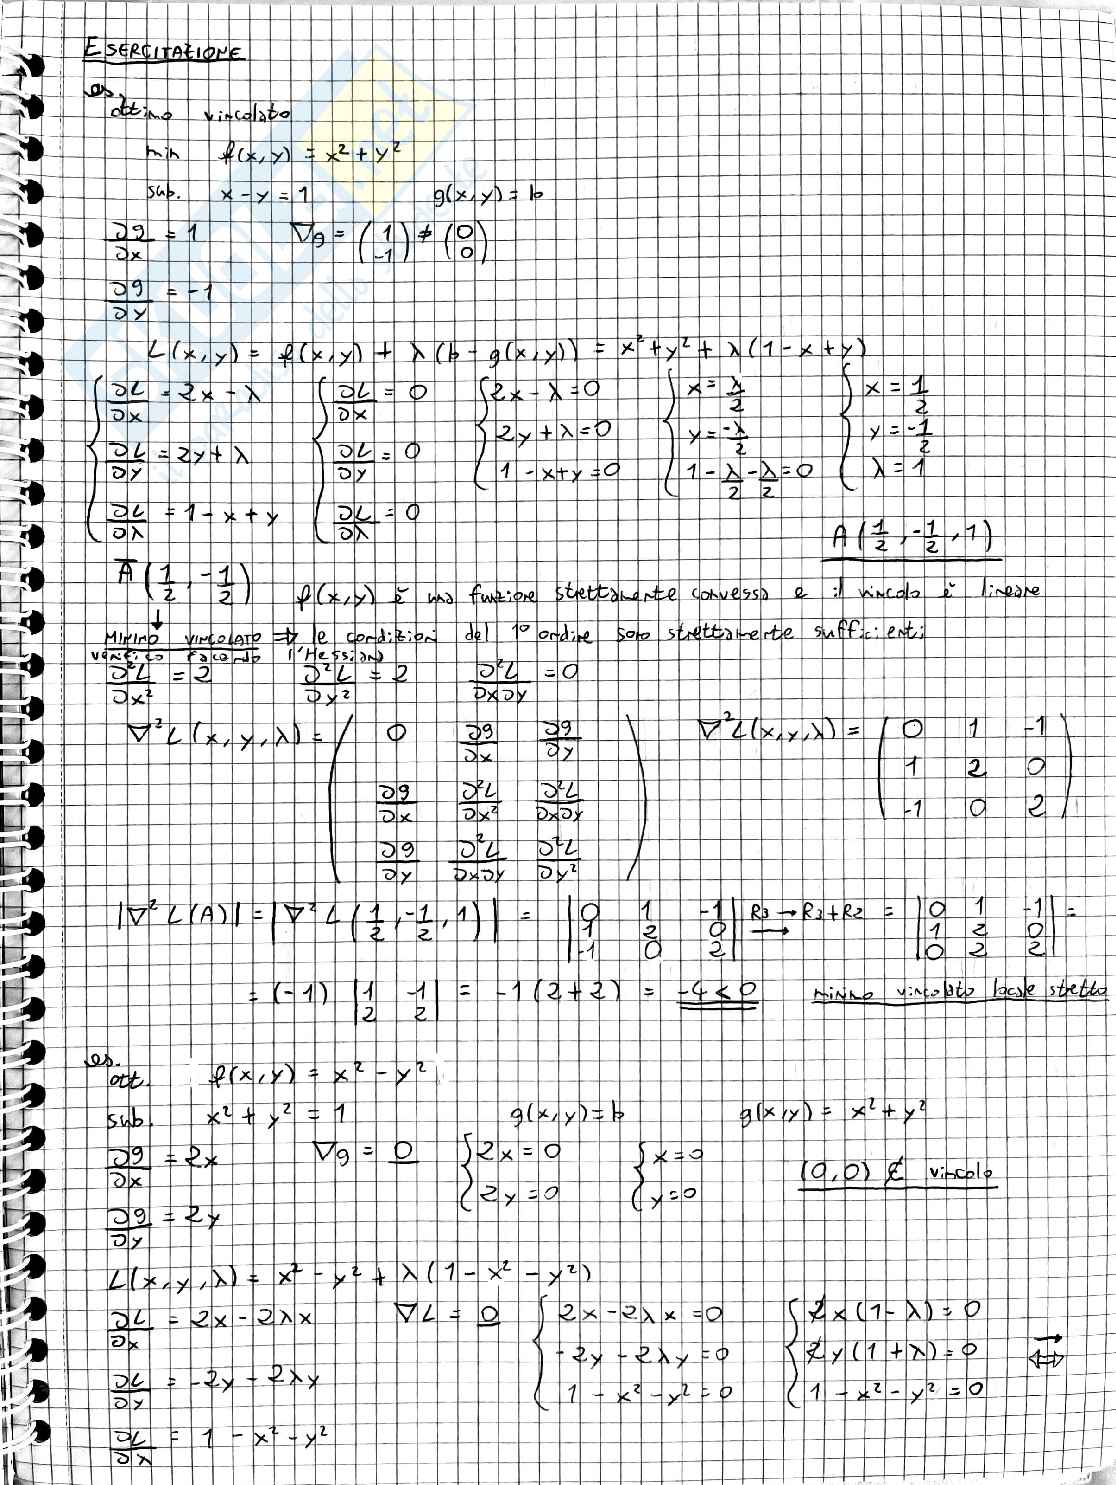 ESERCITAZIONE
es.
ottimo vincolato
min f(x,y) = x² + y²
sub. x - y = 1 g(x,y) = b
∂g/∂x = 1 ∇g = (1 -1) ≠ (0 0)
∂g/∂y = -1
L(x,y) = f(x,y) + λ(b - g(x,y)) = x² + y² + λ(1 - x + y)
{ ∂L/∂x = 2x - λ { ∂L/∂x = 0 { 2x - λ = 0 { x = λ/2 { x = 1/2
∂L/∂y = 2y + λ ∂L/∂y = 0 2y + λ = 0 y = -λ/2 y = -1/2
∂L/∂λ = 1 - x + y ∂L/∂λ = 0 1 - x + y = 0 1 - λ/2 - λ/2 = 0 λ = 1
A(1/2, -1/2, 1)
Ā(1/2, -1/2) f(x,y) è una funzione strettamente convessa e il vincolo è lineare
↓
MINIMO VINCOLATO ⇒ le condizioni del 1° ordine sono strettamente sufficienti
verifico facendo l'Hessiano
∂²L/∂x² = 2 ∂²L/∂y² = 2 ∂²L/∂x∂y = 0
∇²L(x,y,λ) = ( 0 ∂g/∂x ∂g/∂y ∇²L(x,y,λ) = ( 0 1 -1
∂g/∂x ∂²L/∂x² ∂²L/∂x∂y 1 2 0
∂g/∂y ∂²L/∂x∂y ∂²L/∂y² ) -1 0 2 )
|∇²L(A)| = |∇²L(1/2, -1/2, 1)| = |0 1 -1| R3 → R3 + R2 = |0 1 -1| =
|1 2 0| → |1 2 0|
|-1 0 2| |0 2 2|
= (-1) |1 -1 2 2| = -1(2+2) = -4 < 0 minimo vincolato locale stretto
es.
ott. f(x,y) = x² - y²
sub. x² + y² = 1 g(x,y) = b g(x,y) = x² + y²
∂g/∂x = 2x ∇g = 0 { 2x = 0 { x = 0 (0,0) ∉ vincolo
∂g/∂y = 2y 2y = 0 y = 0
L(x,y,λ) = x² - y² + λ(1 - x² - y²)
∂L/∂x = 2x - 2λx ∇L = 0 { 2x - 2λx = 0 { 2x(1-λ) = 0
∂L/∂y = -2y - 2λy -2y - 2λy = 0 2y(1+λ) = 0 ⇔
∂L/∂λ = 1 - x² - y² 1 - x² - y² = 0 1 - x² - y² = 0